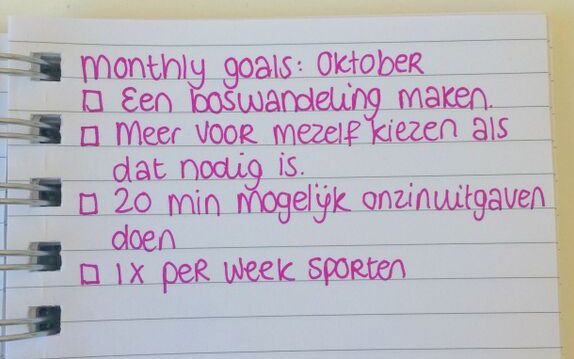 monthly goals: oktober
□ Een boswandeling maken.
□ Meer voor mezelf kiezen als
dat nodig is.
□ 20 min mogelijk onzinuitgaven
doen
□ 1x per week sporten